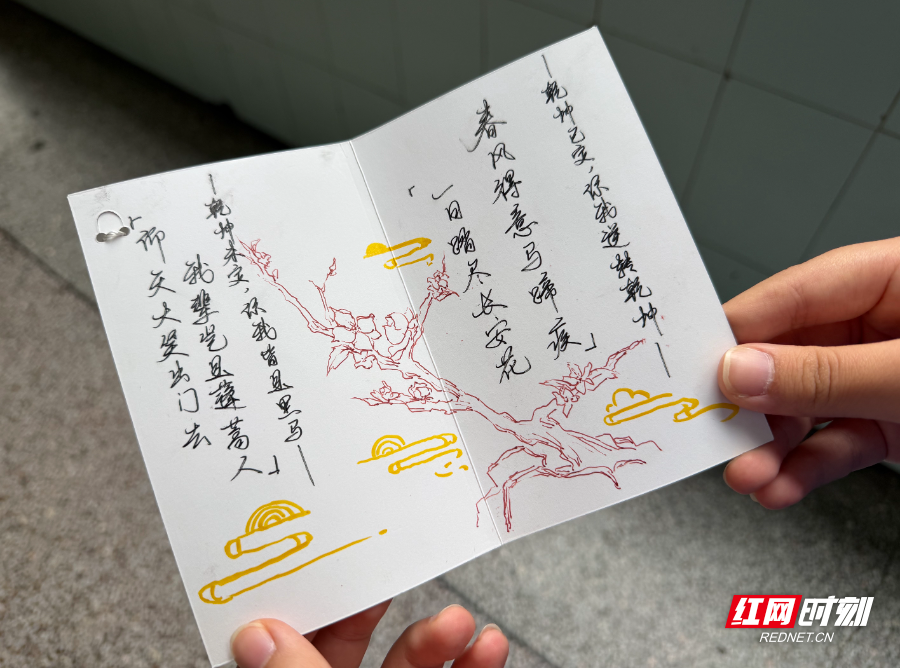 —乾坤已定，你我逆转乾坤—
春风得意马蹄疾」
「一日踏尽长安花
—乾坤未定，你我皆是黑马—
我辈岂是蓬蒿人」
「仰天大笑出门去
红网时刻
REDNET.CN